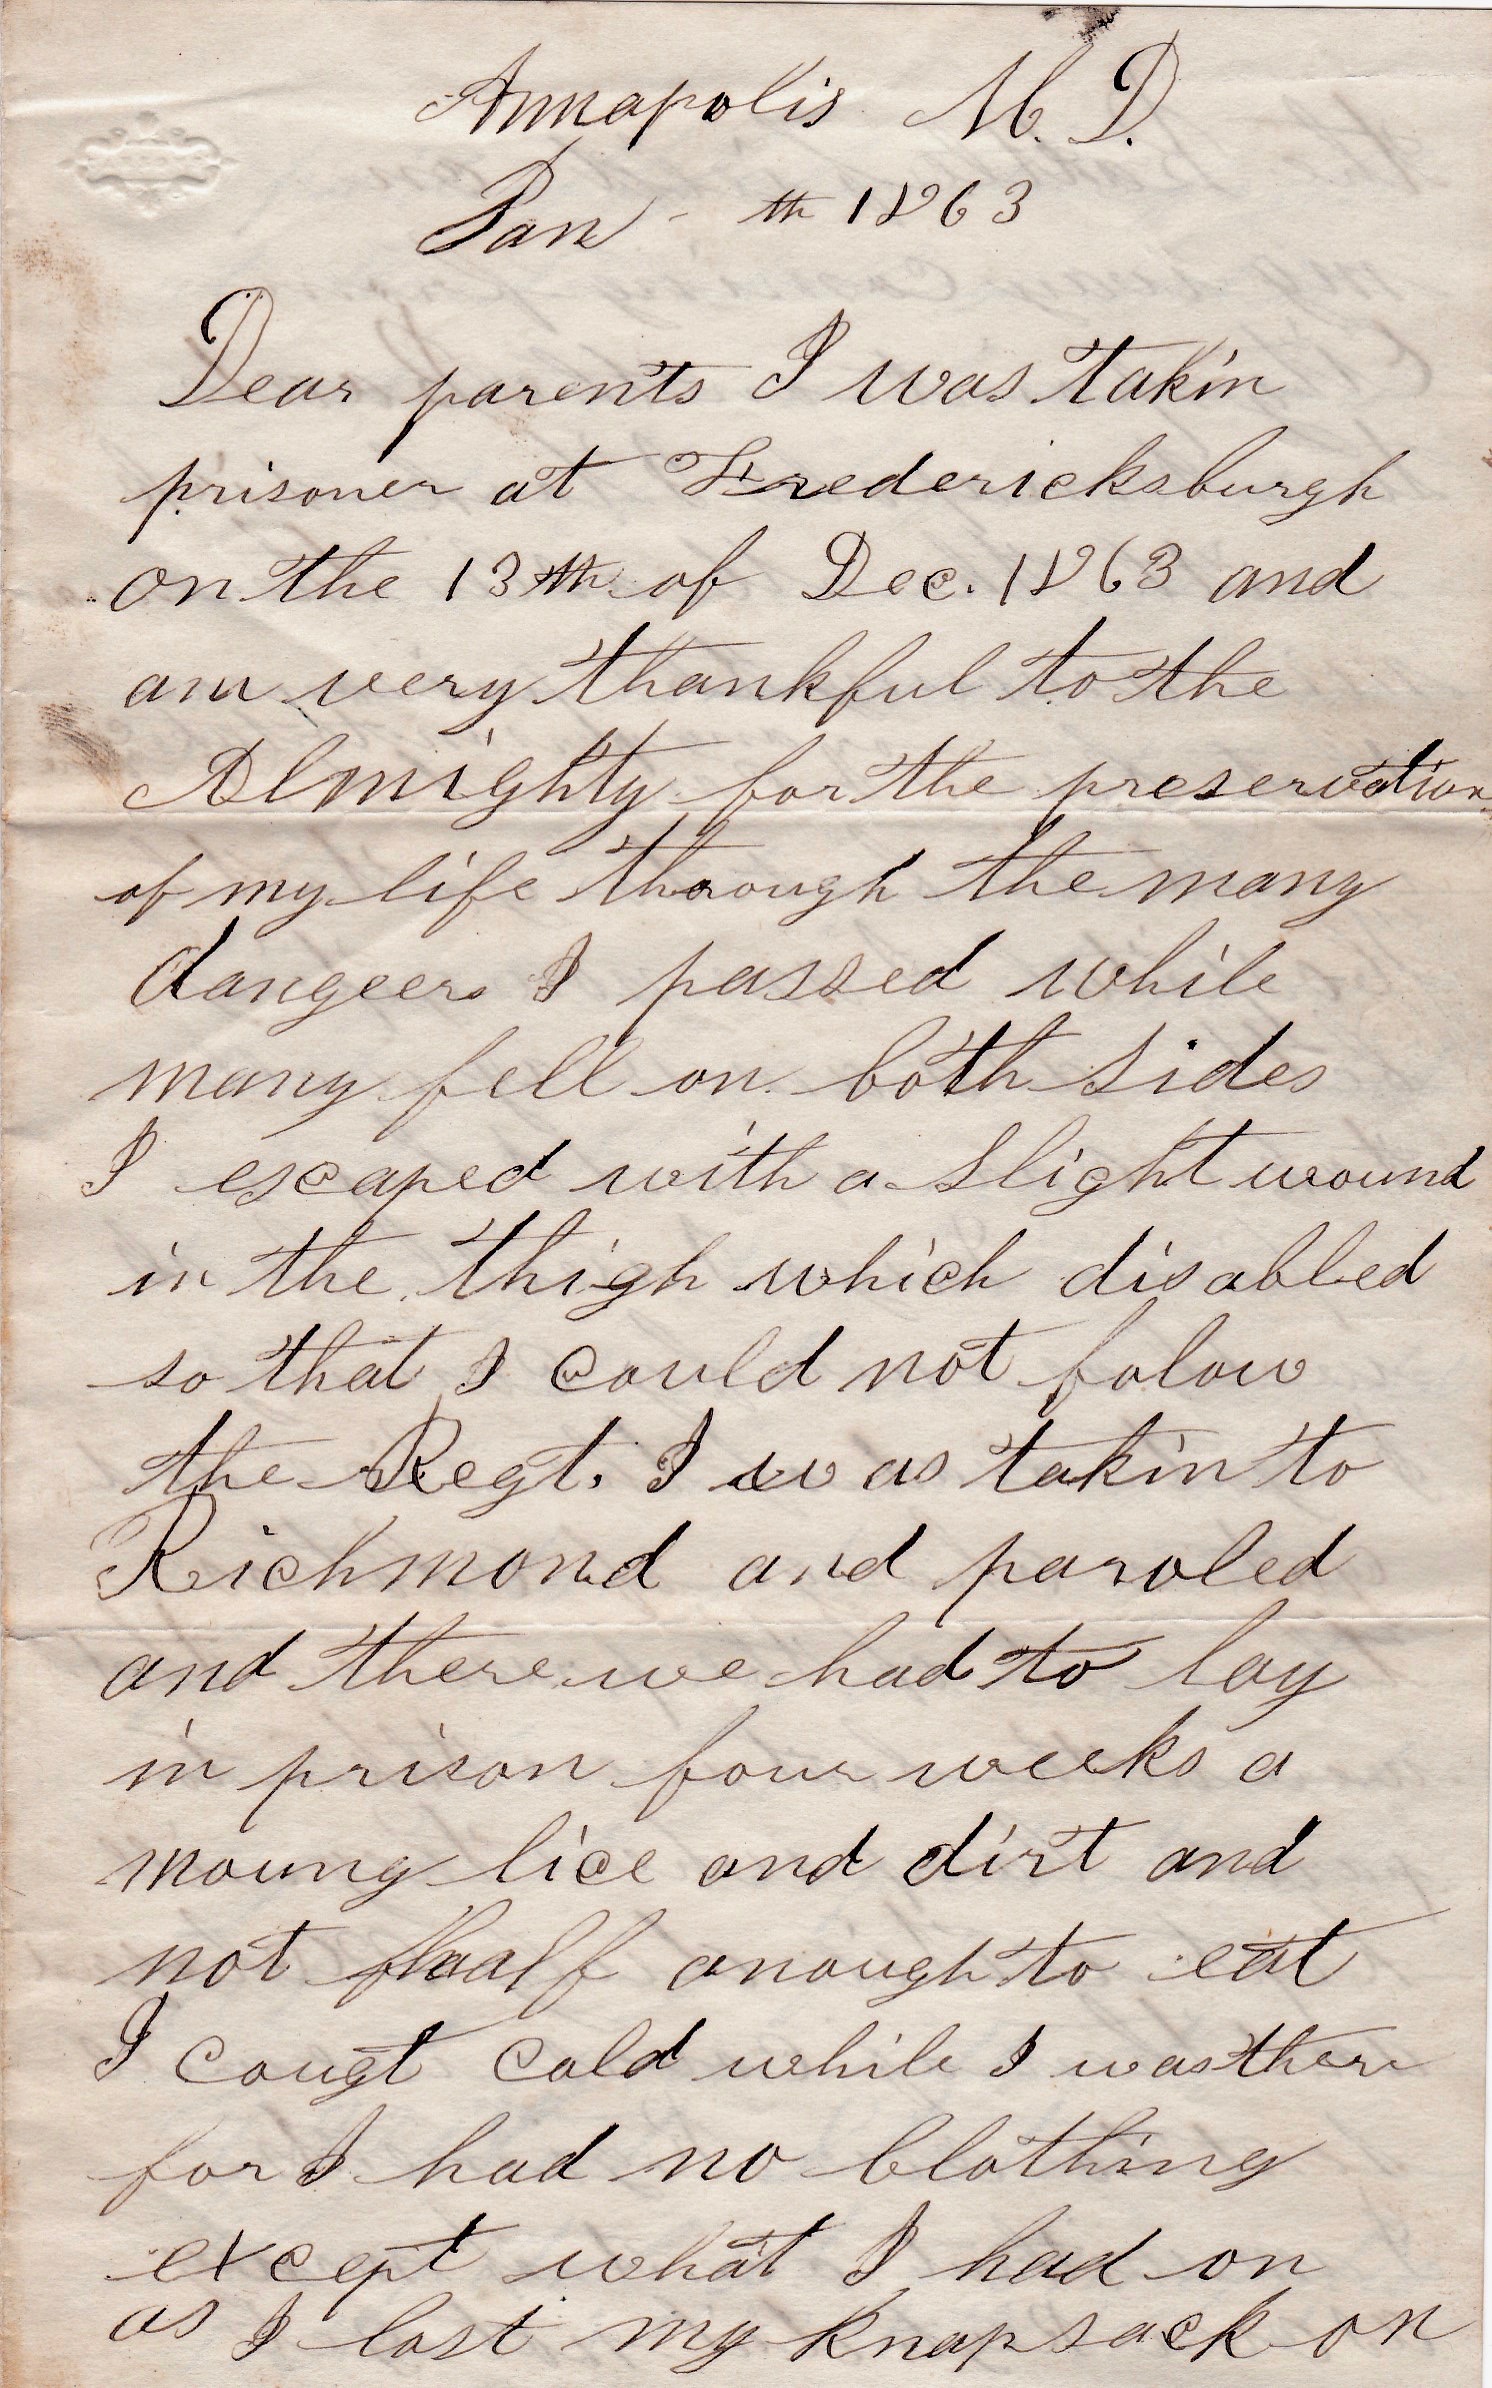 Annapolis M. D.
Jan - th 1863
Dear parents I was takin
prisoner at Fredericksburgh
on the 13th of Dec. 1863 and
am very thankful to the
Almighty for the preservation
of my life through the many
dangeers I passed while
many fell on both sides
I escaped with a slight wound
in the thigh which disabled
so that I could not folow
the Regt. I was takin to
Richmond and paroled
and there we had to lay
in prison four weeks a
moung lice and dirt and
not half anough to eat
I cougt cold while I was there
for I had no clothing
except what I had on
as I lost my knapsack on